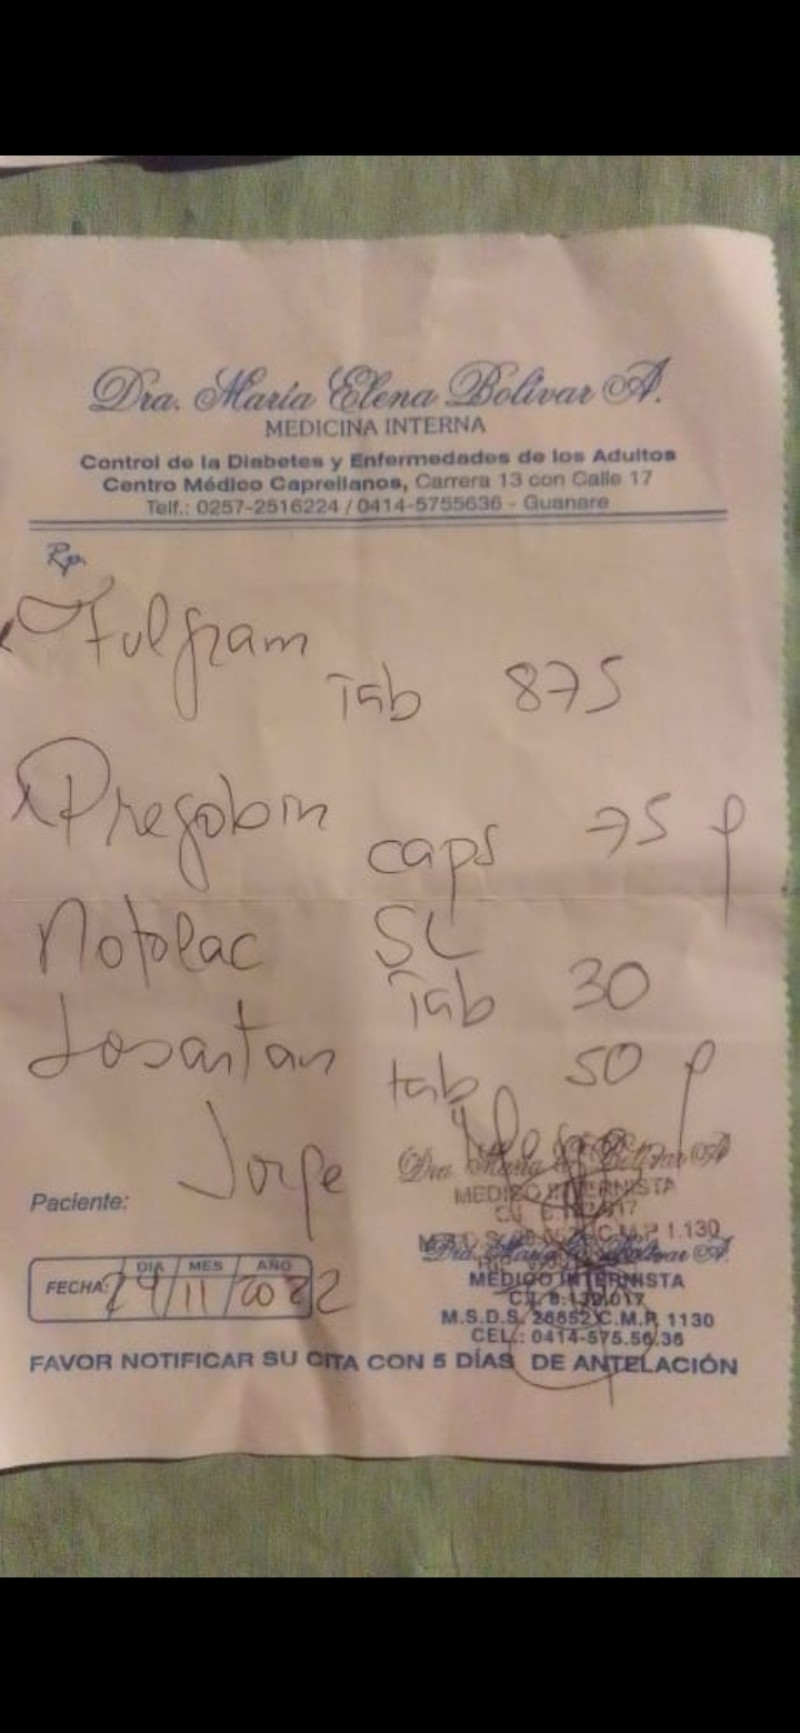 Dra. María Elena Bolívar A.
MEDICINA INTERNA
Control de la Diabetes y Enfermedades de los Adultos
Centro Médico Caprellanos, Carrera 13 con Calle 17
Telf.: 0257-2516224 / 0414-5755636 - Guanare
Rp.
Fulgram
Tab 875
Pregobin
caps 75
Notolac SL
Tab 30
Losartan
tab 50
Paciente: Jorge
Dra. María E. Bolívar A
MEDICO INTERNISTA
C.M.P 1.130
Dra. María E. Bolívar A.
MEDICO INTERNISTA
C.I. 8.132.017
M.S.D.S. 26652 C.M.P. 1130
CEL.: 0414-575.56.36
DIA MES AÑO
FECHA: 29/11/2022
FAVOR NOTIFICAR SU CITA CON 5 DÍAS DE ANTELACIÓN